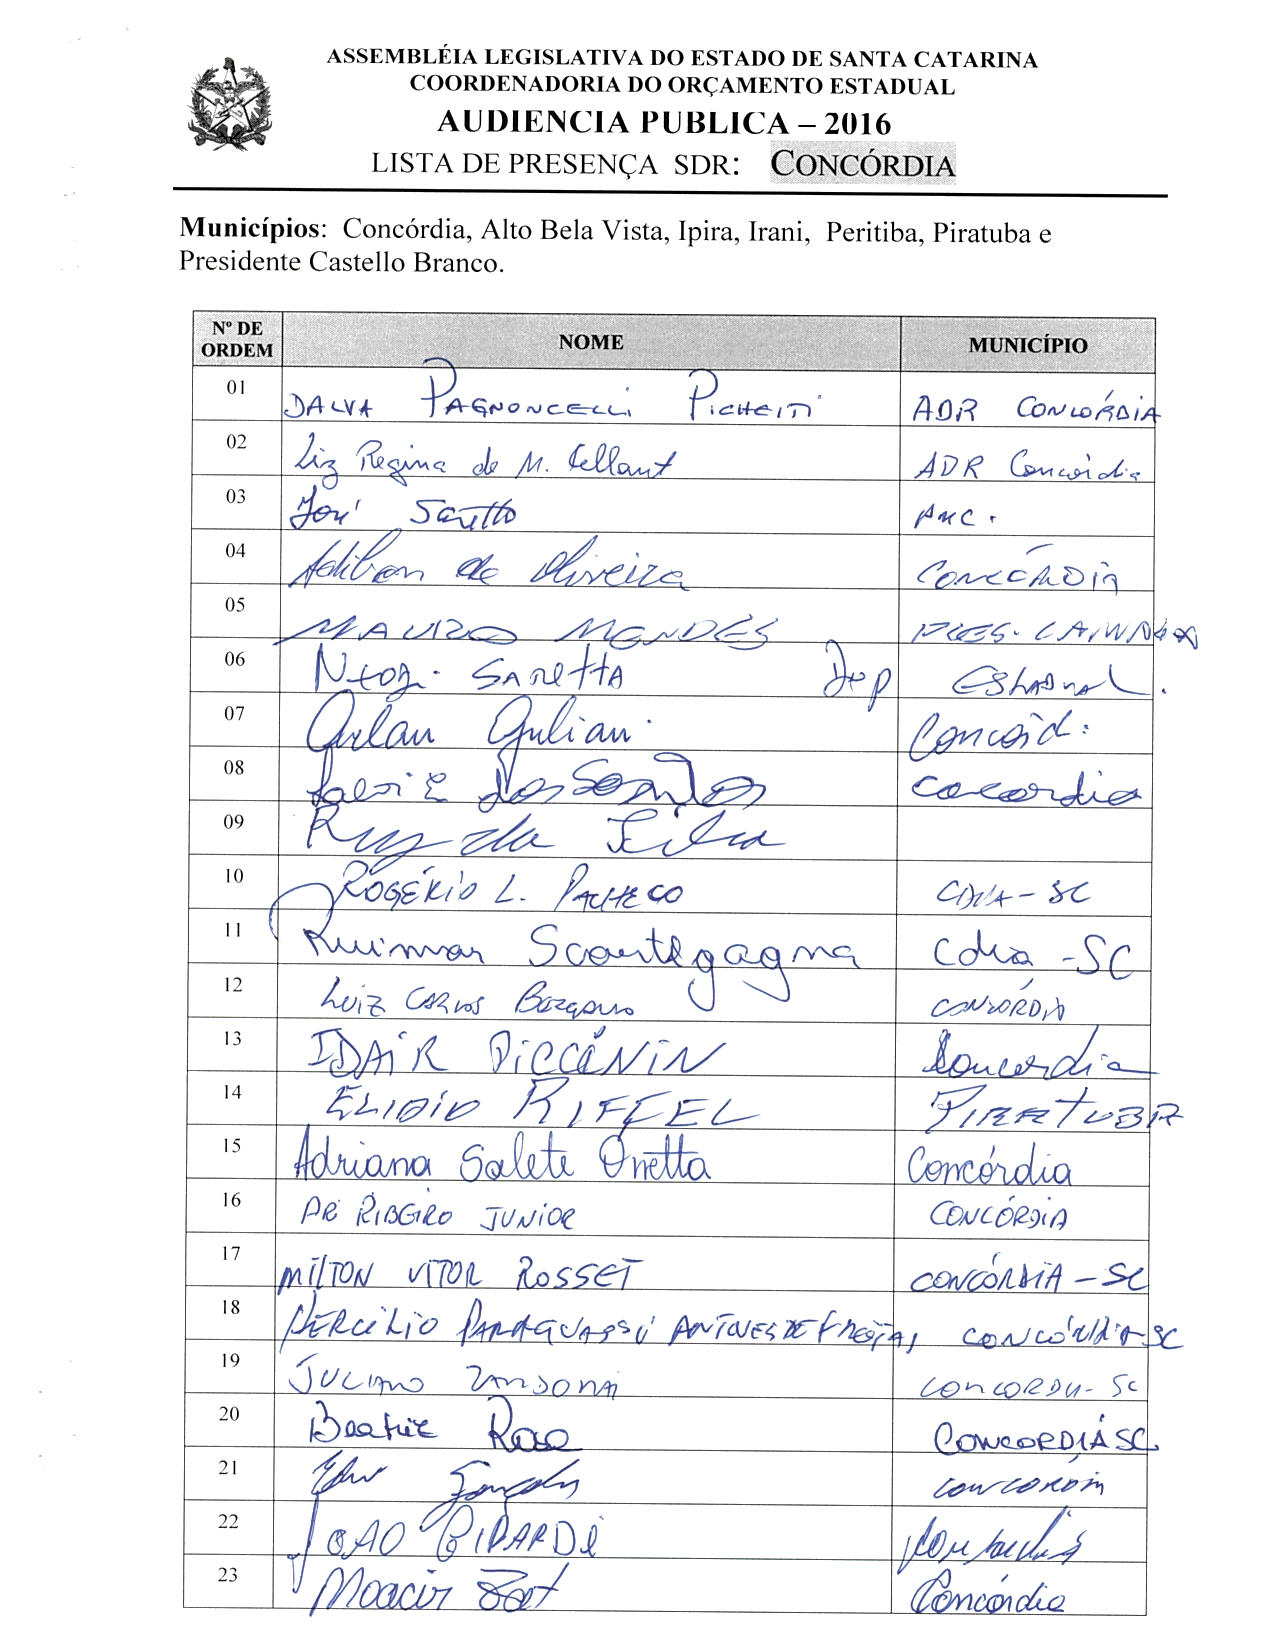 ASSEMBLÉIA LEGISLATIVA DO ESTADO DE SANTA CATARINA
COORDENADORIA DO ORÇAMENTO ESTADUAL
AUDIENCIA PUBLICA – 2016
LISTA DE PRESENÇA SDR: CONCÓRDIA
Municípios: Concórdia, Alto Bela Vista, Ipira, Irani, Peritiba, Piratuba e
Presidente Castello Branco.
Nº DE ORDEM NOME MUNICÍPIO
01 DALVA PAGNONCELLI PICHEITI ADR CONCÓRDIA
02 Liz Regina de M. ADR Concórdia
03 José Saretto AMC.
04 de Oliveira CONCÓRDIA
05 MAURO MENDES PRES.
06 SARETTA Dep ESTADUAL.
07 Arlan Guliani Concórd:
08 dos Santos Concordia
09 Ruy da Silva
10 ROGÉRIO L. PACHECO CDIA-SC
11 Ruimar Scortegagna Cdia-SC
12 LUIZ CARLOS CONCÓRDIA
13 IDAIR PICCÉNIN Concordia
14 ELIDIO RIFFEL PIRATUBA
15 Adriana Salete Onetta Concórdia
16 ARI RIBEIRO JUNIOR CONCÓRDIA
17 MILTON VITOR ROSSET CONCÓRDIA-SC
18 HERCÍLIO PARAGUASSÚ ANTUNES DE FREITAS CONCÓRDIA-SC
19 JULIANO ZANDONAI CONCORDIA-SC
20 Beatriz Rosa CONCÓRDIA SC
21 CONCÓRDIA
22 JOAO GIRARDI
23 Moacir Concórdia